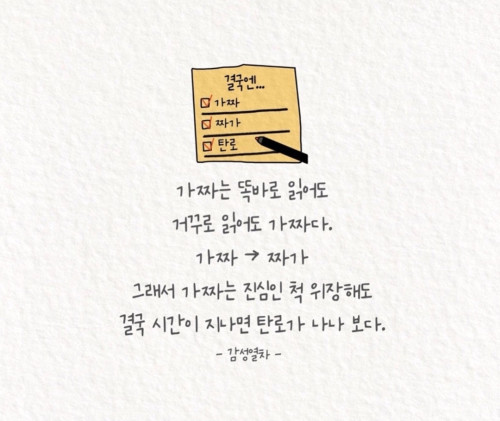 결국엔...
가짜
짜가
탄로
가짜는 똑바로 읽어도
거꾸로 읽어도 가짜다.
가짜 → 짜가
그래서 가짜는 진심인 척 위장해도
결국 시간이 지나면 탄로가 나나 보다.
- 감성열차 -